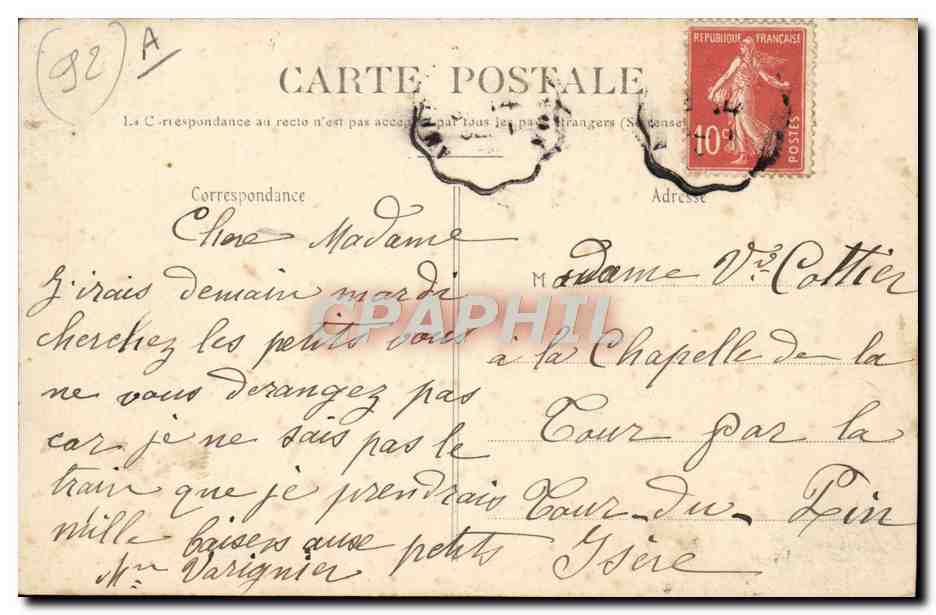 92 A
CARTE POSTALE
RÉPUBLIQUE FRANÇAISE
10c
POSTES
La Correspondance au recto n'est pas acceptée par tous les pays étrangers
Correspondance
Adresse
Chere Madame
J'irais demain mardi
cherchez les petits vous
ne vous derangez pas
car je ne sais pas le
train que je prendrais
mille baisers aux petits
Mme Varignier
Madame Vve Cottier
à la Chapelle de la
Tour par la
Tour-du-Pin
Isère
CPAPHIL